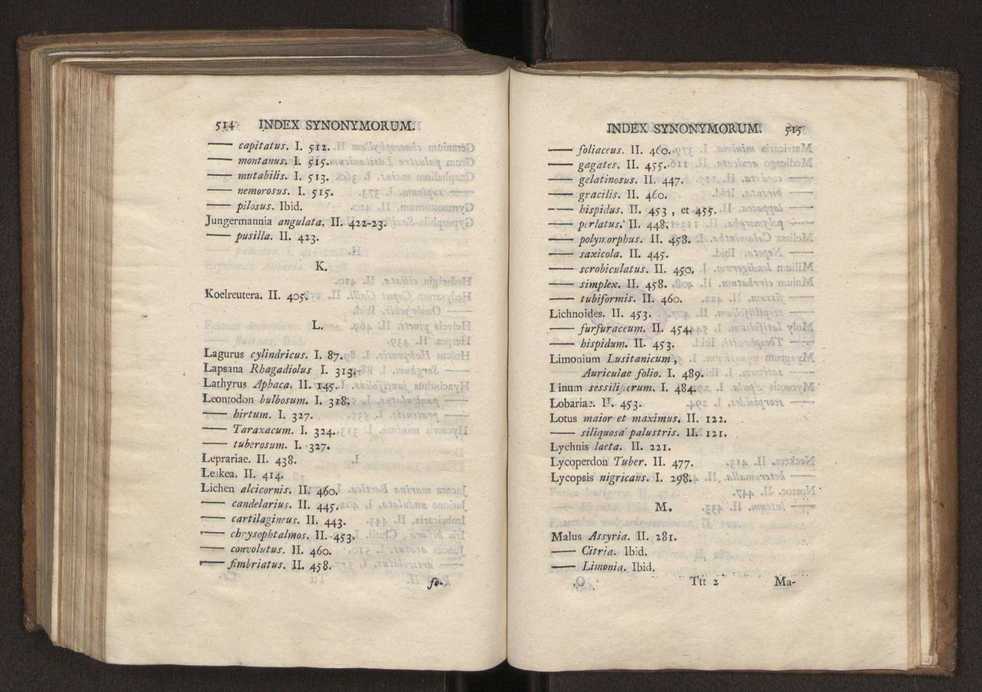 514 INDEX SYNONYMORUM.
—— capitatus. I. 512.
—— montanus. I. 515.
—— mutabilis. I. 513.
—— nemorosus. I. 515.
—— pilosus. Ibid.
Jungermannia angulata. II. 422-23.
—— pusilla. II. 423.
K.
Koelreutera. II. 405.
L.
Lagurus cylindricus. I. 87.
Lapsana Rhagadiolus I. 313.
Lathyrus Aphaca. II. 145.
Leontodon bulbosum. I. 318.
—— hirtum. I. 327.
—— Taraxacum. I. 324.
—— tuberosum. I. 327.
Leprariae. II. 438.
Leskea. II. 414.
Lichen alcicornis. II. 460.
—— candelarius. II. 445.
—— cartilagineus. II. 443.
—— chrysophtalmos. II. 453.
—— convolutus. II. 460.
—— fimbriatus. II. 458.
fo-
INDEX SYNONYMORUM. 515
—— foliaceus. II. 460.
—— gagates. II. 455.
—— gelatinosus. II. 447.
—— gracilis. II. 460.
—— hispidus. II. 453, et 455.
—— perlatus. II. 448.
—— polymorphus. II. 458.
—— saxicola. II. 445.
—— scrobiculatus. II. 450.
—— simplex. II. 458.
—— tubiformis. II. 460.
Lichnoides. II. 453.
—— furfuraceum. II. 454.
—— hispidum. II. 453.
Limonium Lusitanicum,
Auriculae folio. I. 489.
Linum sessiliflorum. I. 484.
Lobariae. II. 453.
Lotus maior et maximus. II. 122.
—— siliquosa palustris. II. 121.
Lychnis laeta. II. 221.
Lycoperdon Tuber. II. 477.
Lycopsis nigricans. I. 298.
M.
Malus Assyria. II. 281.
—— Citria. Ibid.
—— Limonia. Ibid.
Ttt 2 Ma-